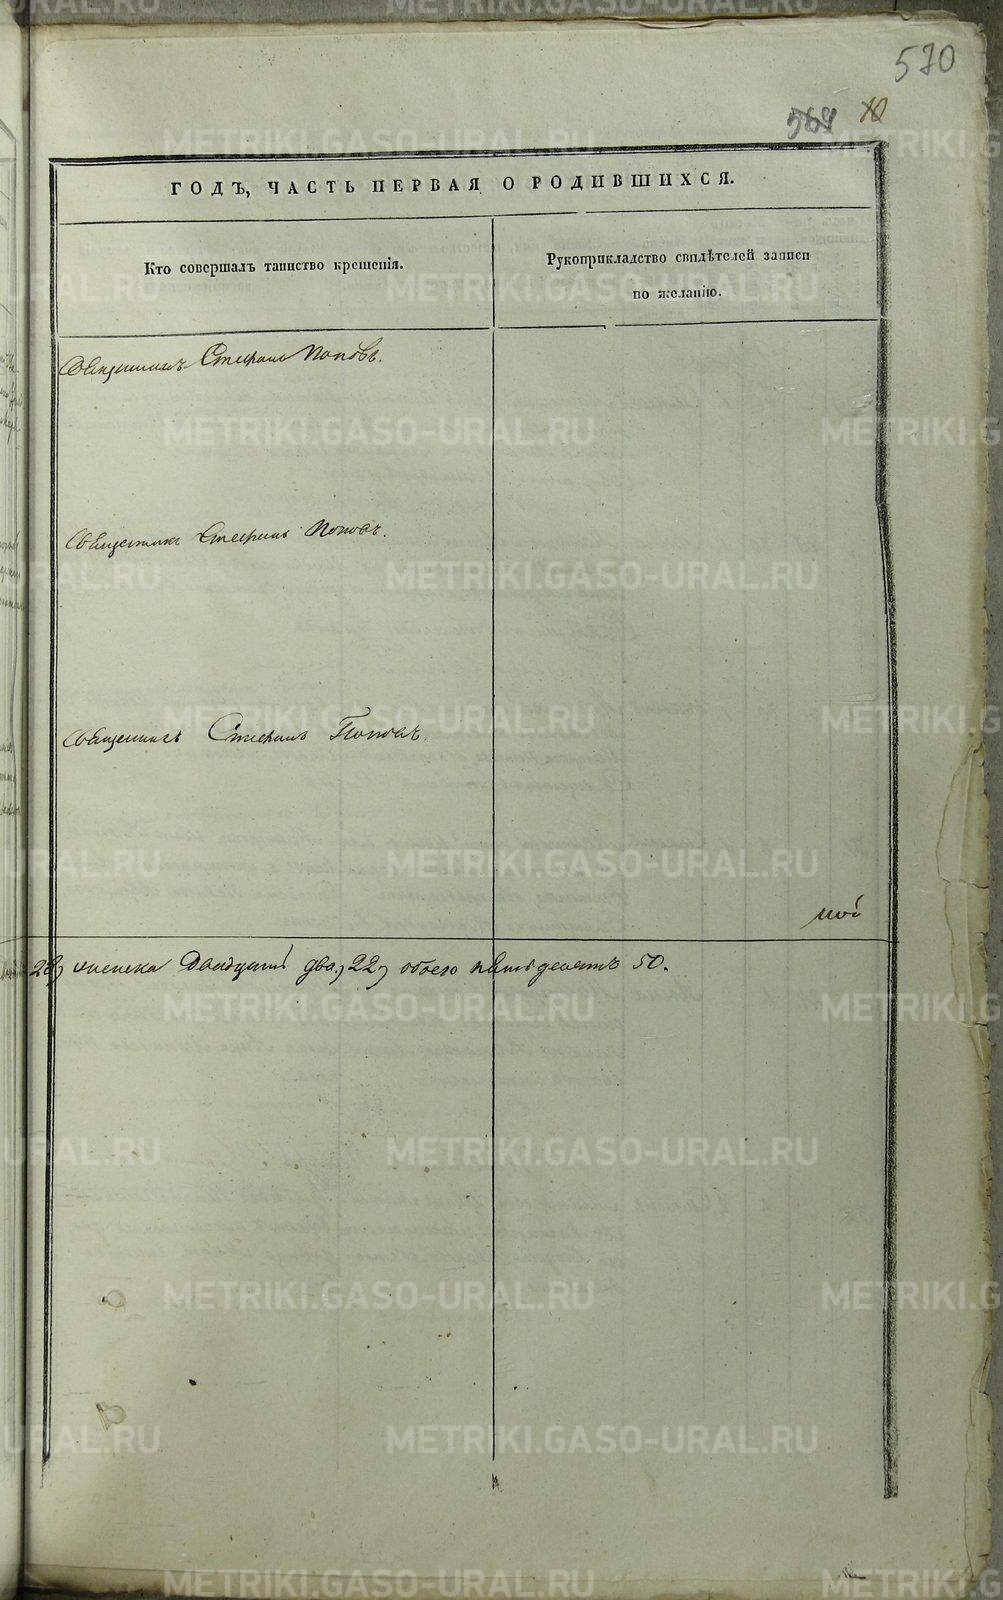 570
569 10
ГОДЪ, ЧАСТЬ ПЕРВАЯ О РОДИВШИХСЯ.
Кто совершалъ таинство крещенія.
Рукоприкладство свидѣтелей записи
по желанію.
Священникъ Стефанъ Поповъ.
Священникъ Стефанъ Поповъ.
Священникъ Стефанъ Поповъ.
28, женска Двадцать два, 22, обоего пятьдесятъ 50.
METRIKI.GASO-URAL.RU